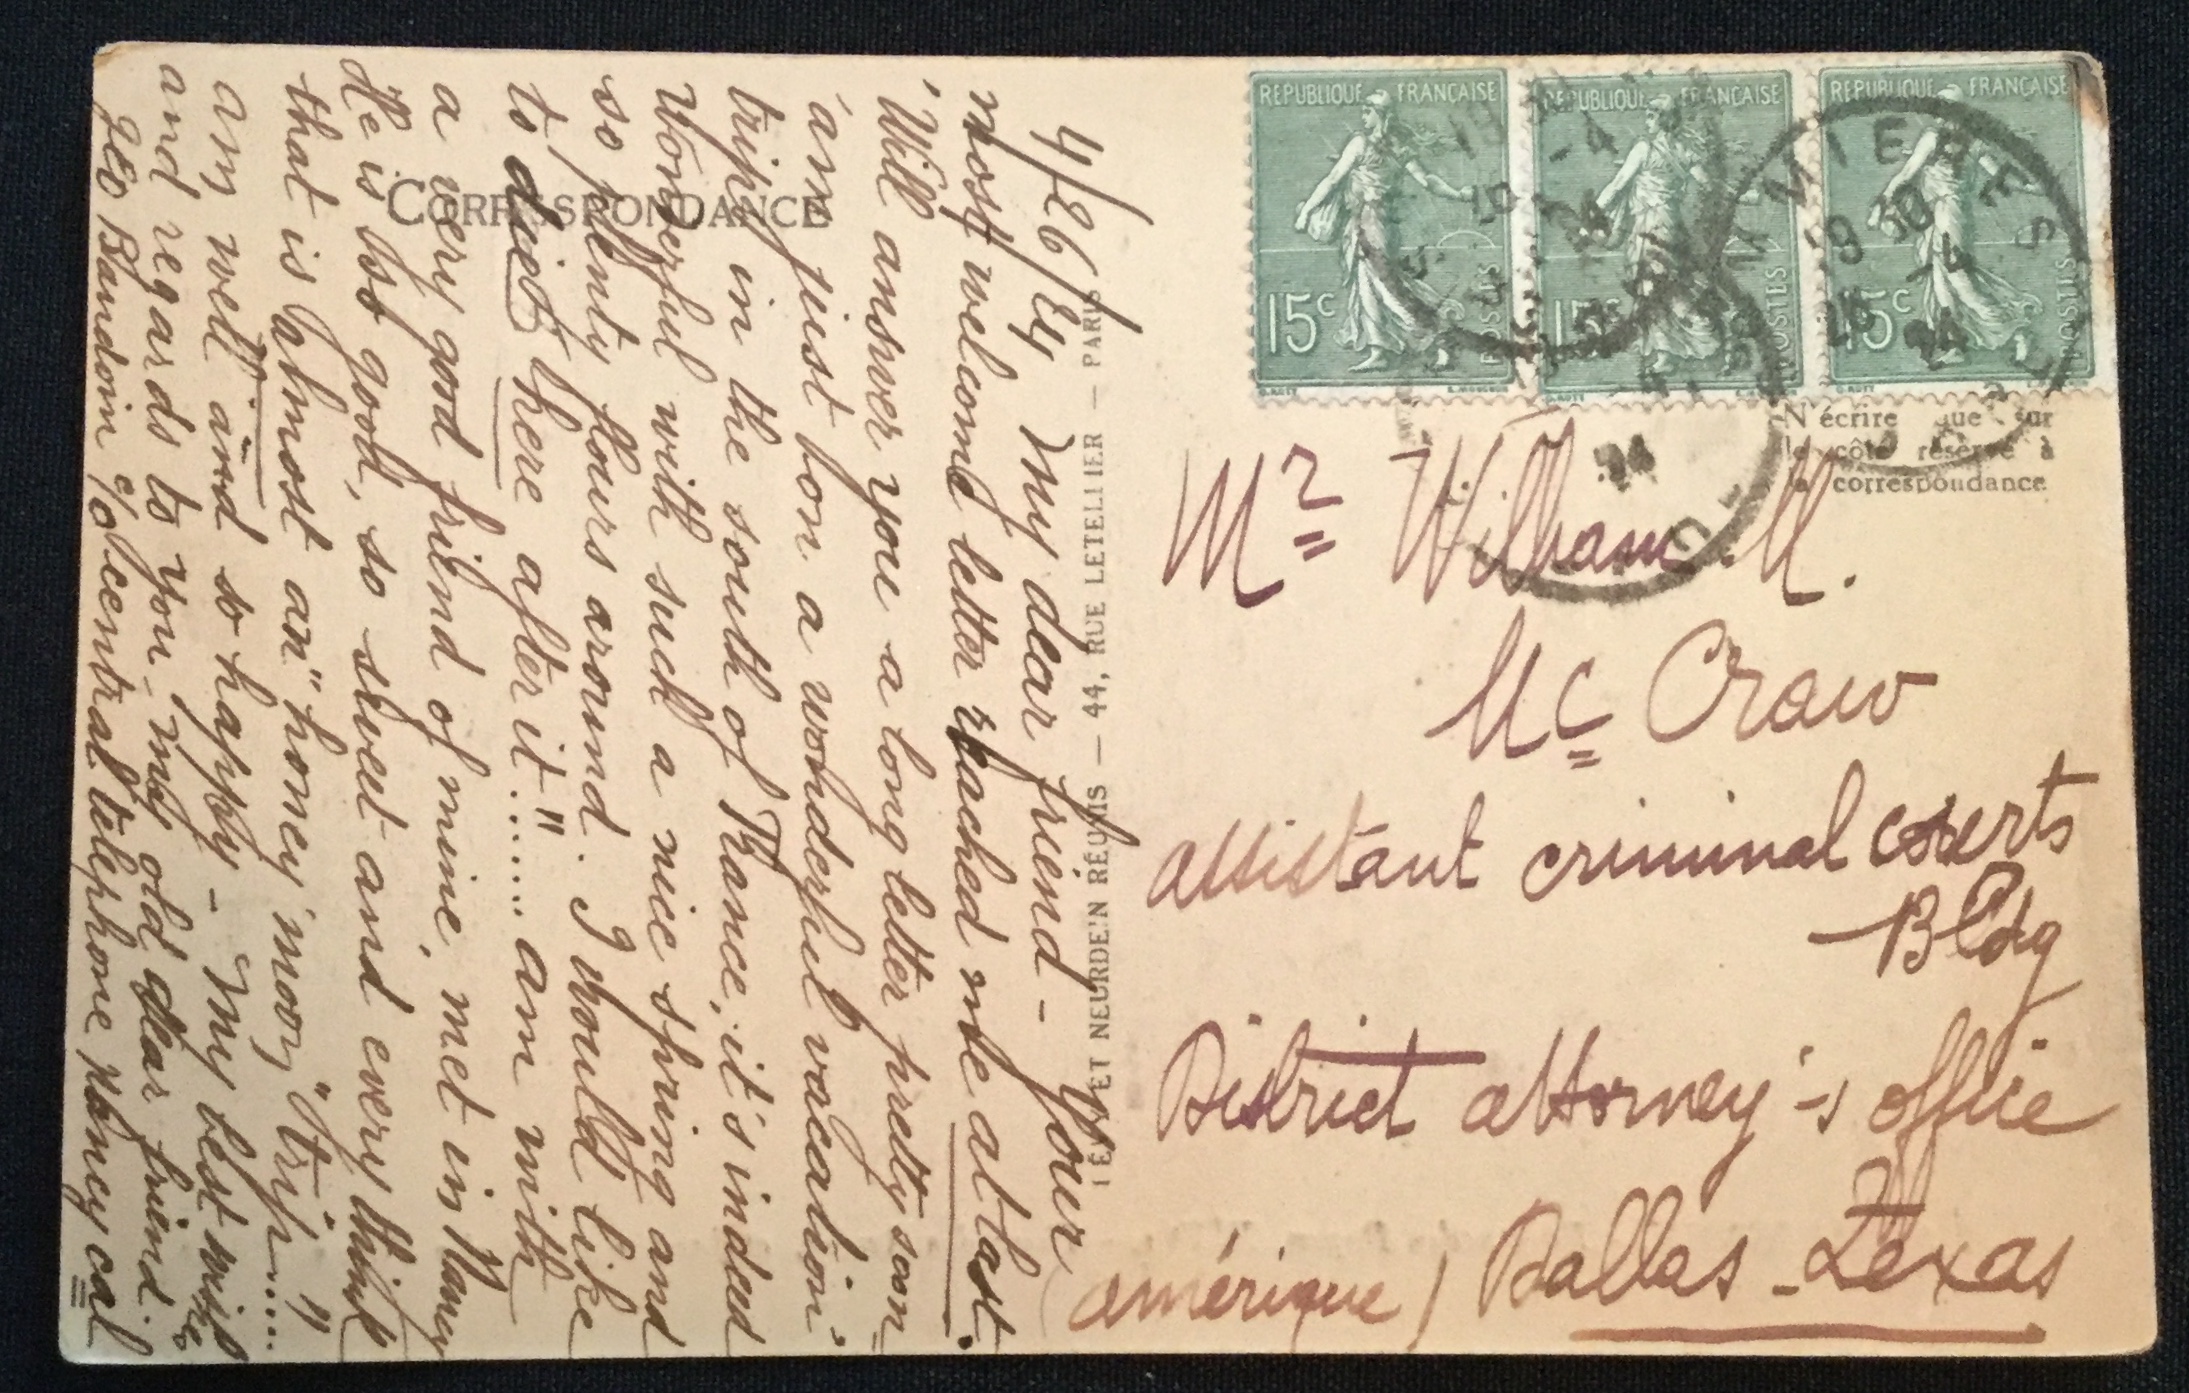 4/26/24 My dear friend - Your
most welcome letter reached me at last.
Will answer you a long letter pretty soon
am just bon a wonderful vacation
trip in the south of France, it's indeed
Wonderful with such a nice spring and
so plenty flours around. I would like
to die there after it"....... am with
a very good friend of mine, met in Nancy
He is so good, so sweet and every think
that is almost an "honey moon, "trip....."
am well and so happy - My best wishes
and regards to you - my old dear friend.
Geo Baudoin c/o central telephone Nancy
CORRESPONDANCE
LÉVY ET NEURDEIN RÉUNIS — 44, RUE LETELLIER — PARIS
REPUBLIQUE FRANÇAISE
15c
POSTES
REPUBLIQUE FRANÇAISE
15c
POSTES
REPUBLIQUE FRANÇAISE
15c
POSTES
19 30
26 -4
24
N'écrire que sur
le côté réservé à
la correspondance
Mr William M.
Mc Craw
assistant criminal courts
Bldg
District attorney's office
(amérique) Dallas - Texas